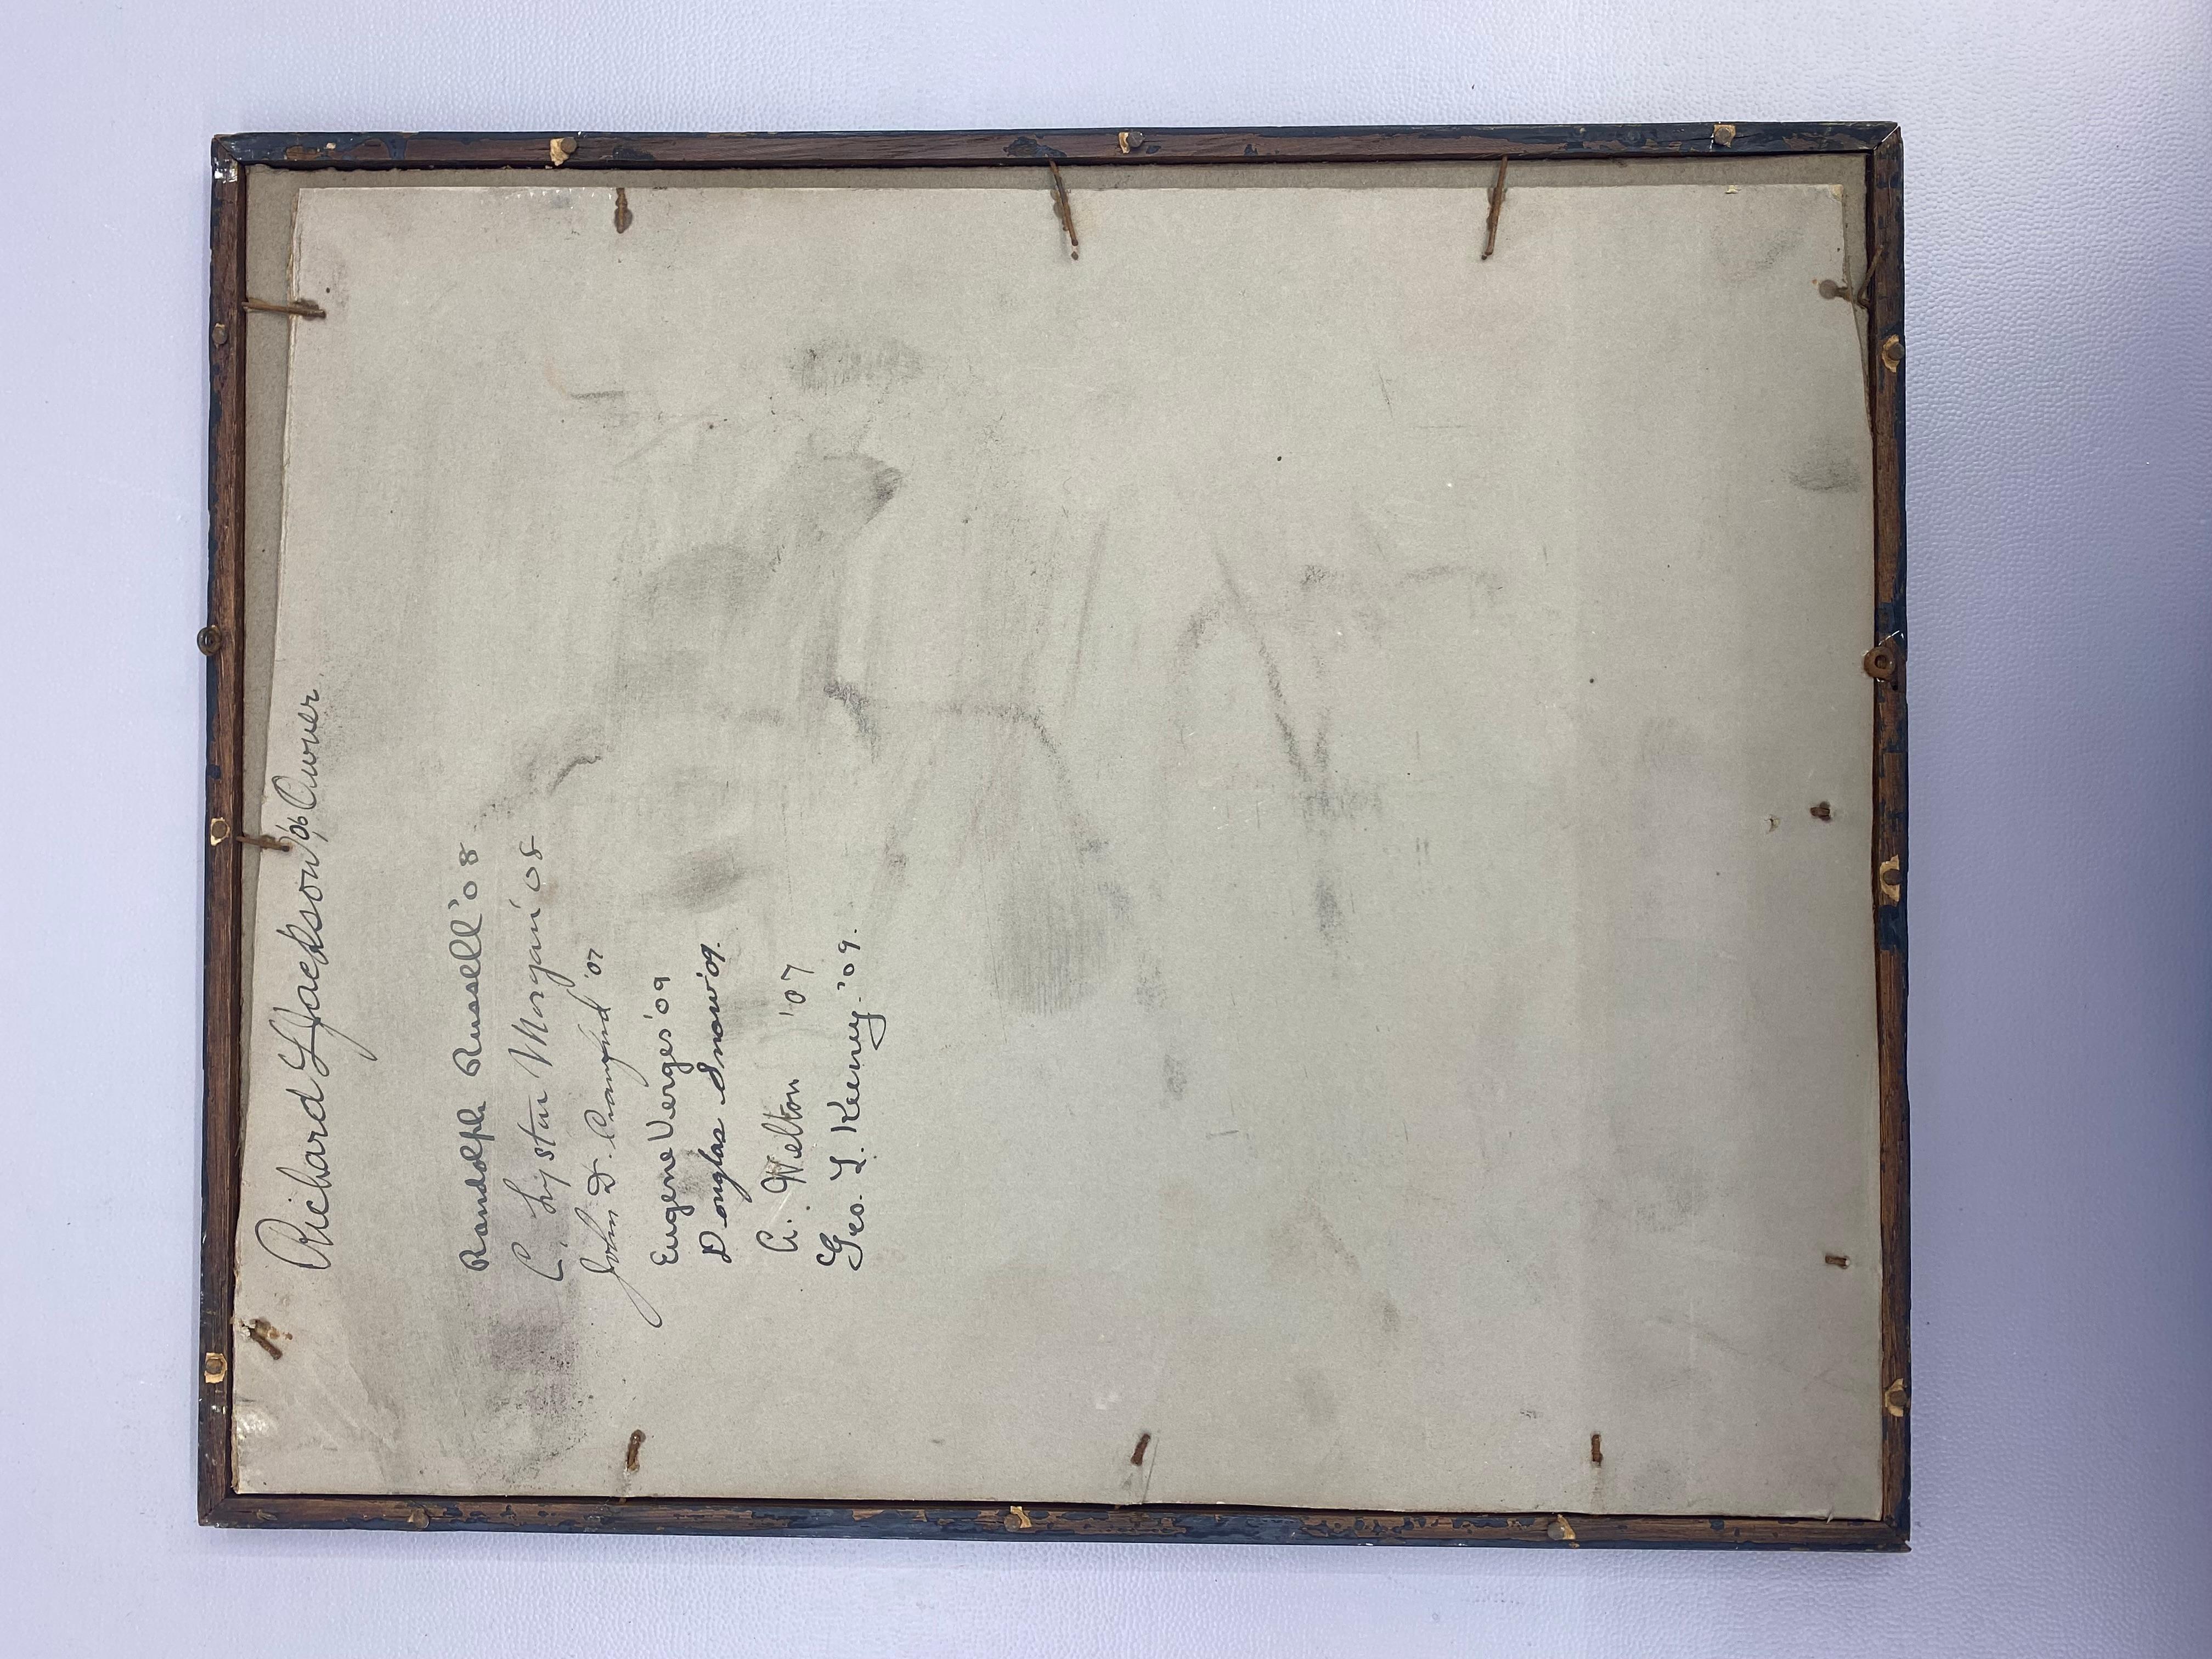 Richard L Jackson '06 Owner.
Randolph Russell '08
C. Lyston Morgan '08
John D. Crawford '07
Eugene Verges '09
Douglas Snow '09.
A. Welton '07
Geo. L. Keeney - '09.